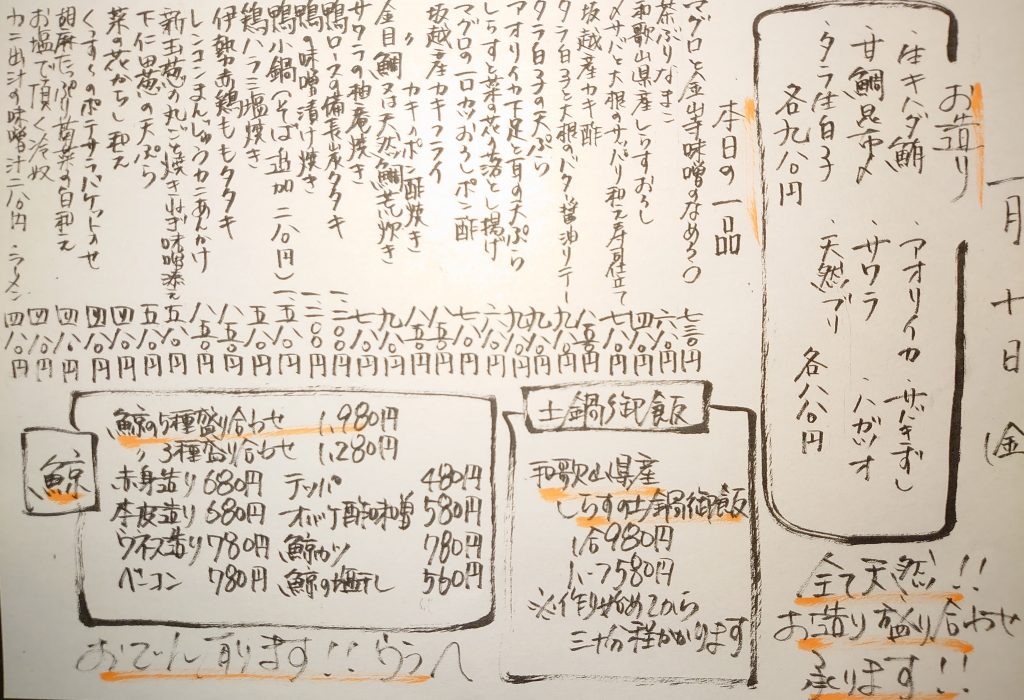 一月十日(金
お造り
・生キハダ鮪
・甘鯛昆布〆
・タラ生白子
各九八〇円
・アオリイカ
・サワラ
天然ブリ
・サバきずし
・ハガツオ
各八八〇円
全て天然!!
お造り盛り合わせ
承ります!!
本日の一品
マグロと金山寺味噌のなめろ〇 七三〇円
茶ぶりなまこ 六八〇円
和歌山県産しらすおろし 四八〇円
〆サバと大根のサッパリ和え寿司仕立て 七八〇円
坂越産カキ酢 八五〇円
タラ白子と大根のバター醤油ソテー 九八〇円
タラ白子の天ぷら 九八〇円
アオリイカ下足と耳の天ぷら 九八〇円
しらすと菜の花かき揚げ 六八〇円
マグロの一口カツおろしポン酢 七八〇円
坂越産カキフライ 八五〇円
〃 カキのポン酢焼き 八五〇円
金目鯛又は天然鯛荒炊き 九八〇円
サワラの柚庵焼き 七八〇円
鴨ロースの備長山炭タタキ 一、二〇〇円
鴨の味噌漬け焼き 一、二〇〇円
鴨小鍋(そば追加二八〇円) 一、一八〇円
鶏ハラミ塩焼き 五八〇円
伊勢赤鶏ももタタキ 八五〇円
レンコンまんじゅうカニあんかけ 八五〇円
新玉葱の丸ごと焼きねぎ味噌添え 五五〇円
下仁田葱の天ぷら 五八〇円
菜の花からし和え 四八〇円
くんすーのポテサラバケットのせ 四八〇円
胡麻たっぷり菊菜の白和え 四八〇円
お塩で頂く冷奴 四八〇円
カニ出汁の味噌汁二八〇円 ラーメン 四八〇円
土鍋御飯
和歌山県産
しらすの土鍋御飯
1合980円
1.5〃1,580円
※作り始めてから
三十分程かかります
鯨
鯨の5種盛り合わせ 1,980円
〃3種盛り合わせ 1,280円
赤身造り 680円 テッパ 480円
本皮造り 680円 オバケ酢味噌 580円
ウネス造り 780円 鯨カツ 780円
ベーコン 780円 鯨の塩干し 560円
おでん有ります!!うらへ